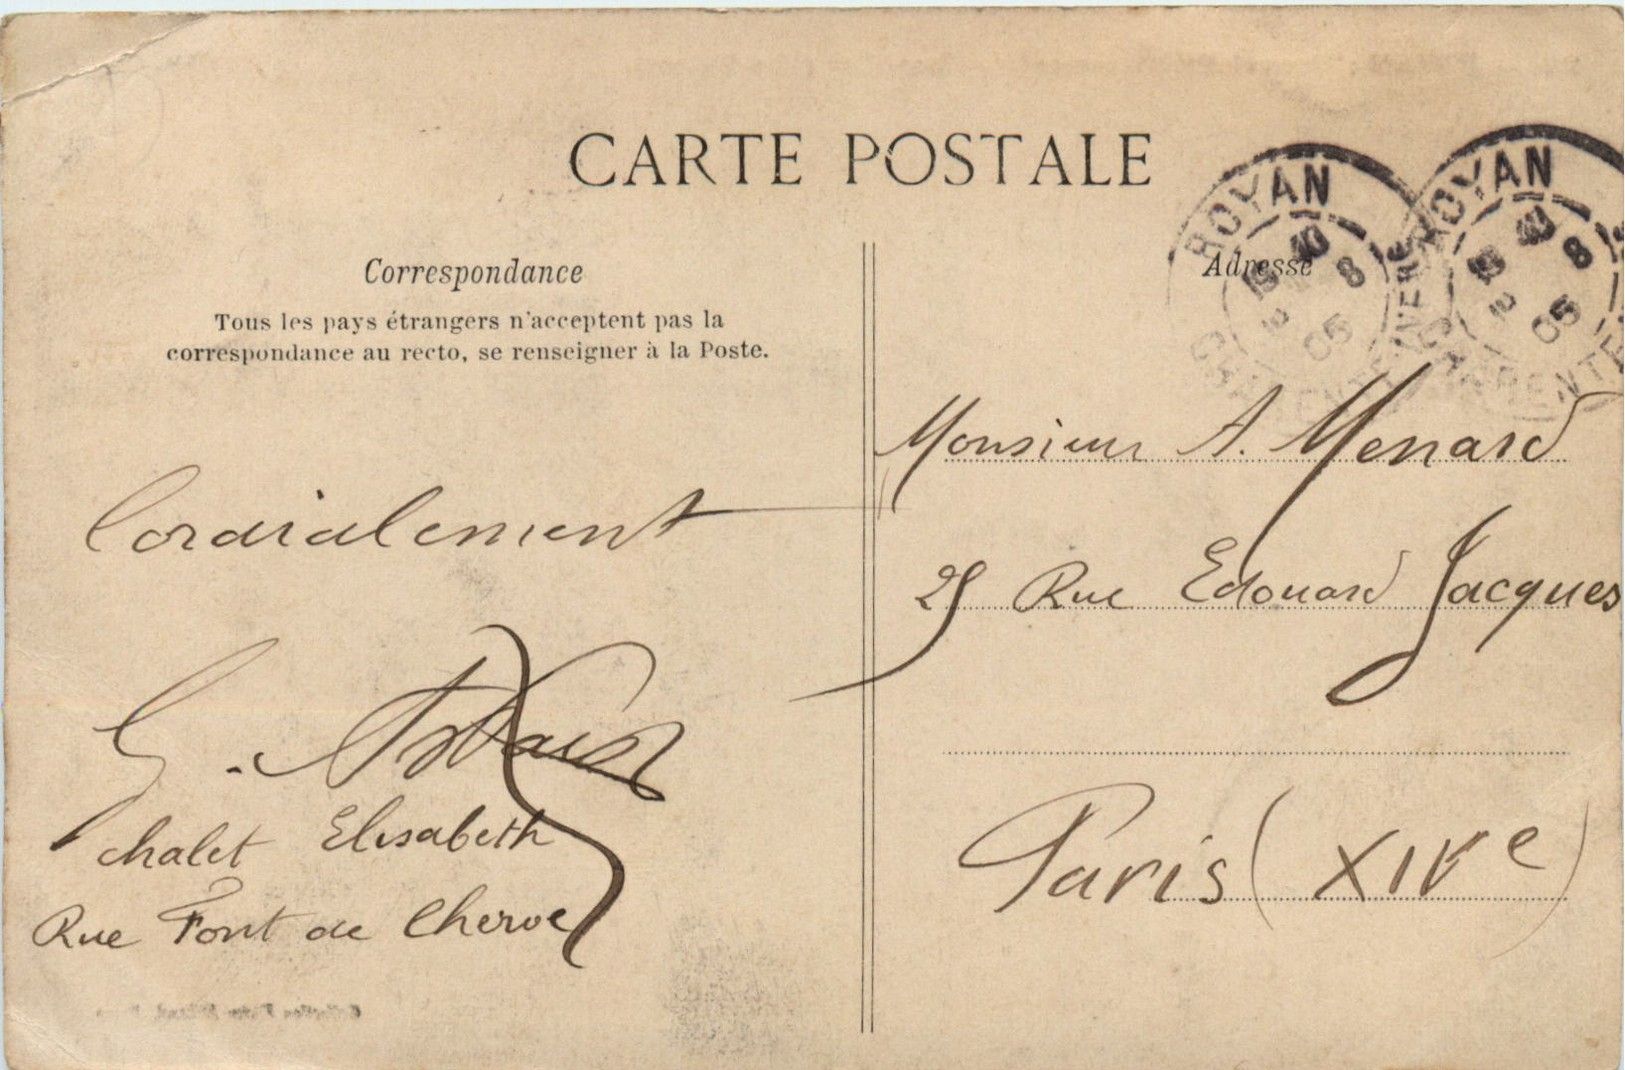 CARTE POSTALE
Correspondance
Tous les pays étrangers n'acceptent pas la
correspondance au recto, se renseigner à la Poste.
Cordialement
G.
chalet Elisabeth
Rue Font de Cherve
Adresse
ROYAN
8
05
ROYAN
8
05
Monsieur A. Menard
25 Rue Edouard Jacques
Paris (XIVe)